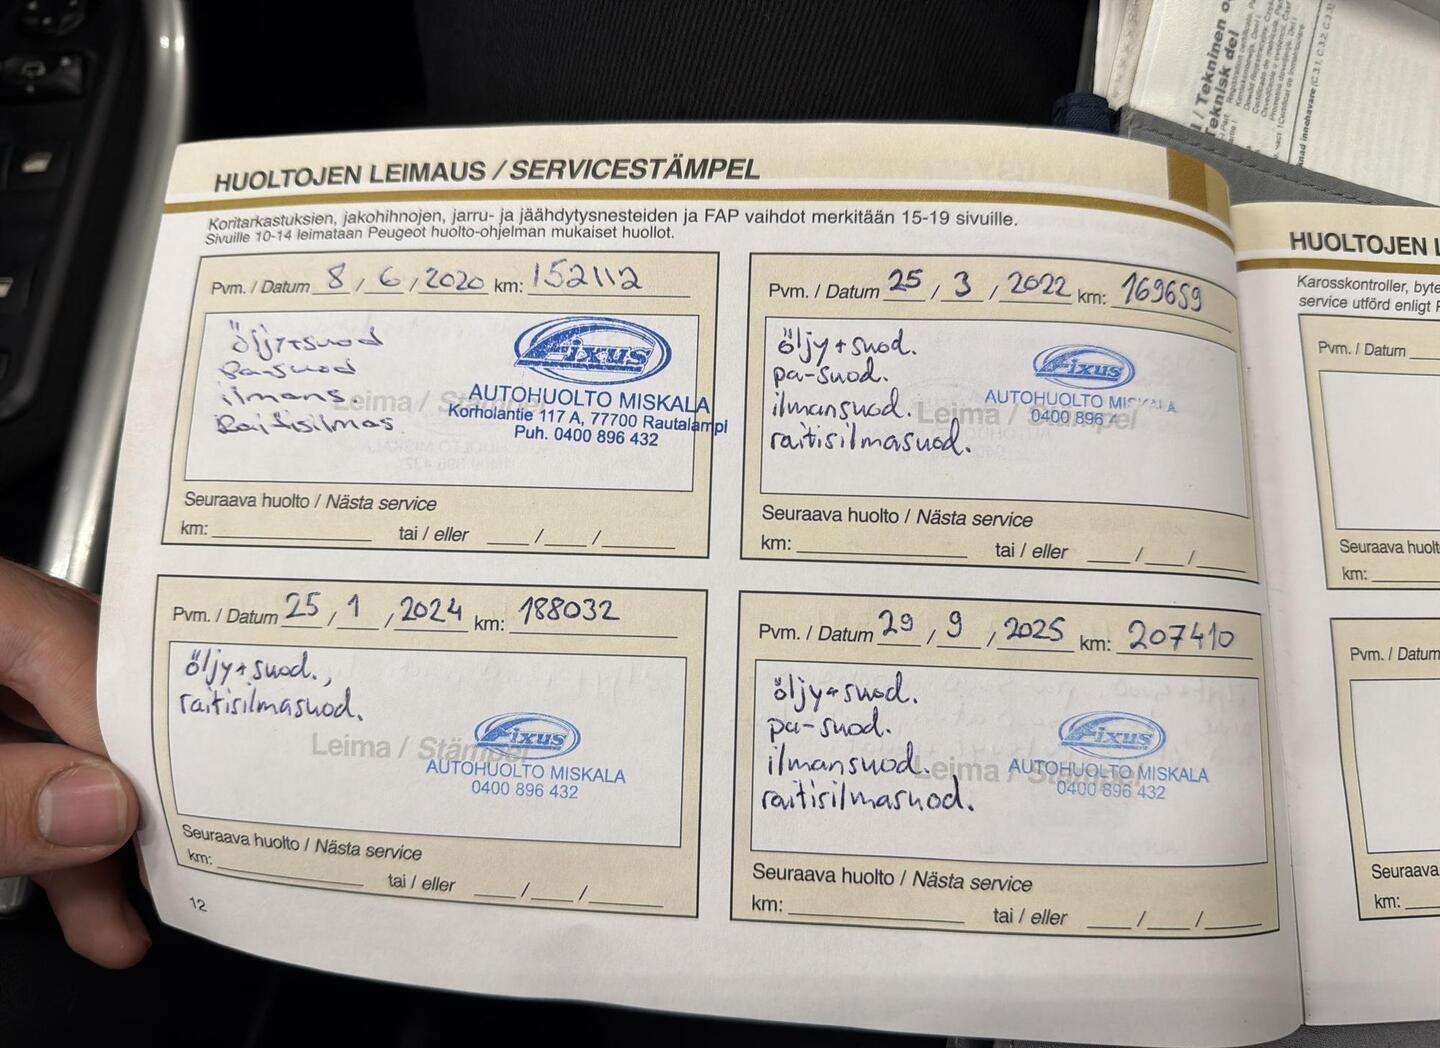 HUOLTOJEN LEIMAUS / SERVICESTÄMPEL
Koritarkastuksien, jakohihnojen, jarru- ja jäähdytysnesteiden ja FAP vaihdot merkitään 15-19 sivuille.
Sivuille 10-14 leimataan Peugeot huolto-ohjelman mukaiset huollot.
Pvm. / Datum 8 / 6 / 2020 km: 152112
öljy+suod
Pa-suod
ilmans.
Raitisilmas.
Leima / Stämpel
Fixus
AUTOHUOLTO MISKALA
Korholantie 117 A, 77700 Rautalampi
Puh. 0400 896 432
Seuraava huolto / Nästa service
km: tai / eller / /
Pvm. / Datum 25 / 3 / 2022 km: 169659
öljy+suod.
pa-suod.
ilmansuod.
raitisilmasuod.
Leima / Stämpel
Fixus
AUTOHUOLTO MISKALA
0400 896 4
Seuraava huolto / Nästa service
km: tai / eller / /
Pvm. / Datum 25 / 1 / 2024 km: 188032
öljy+suod.,
raitisilmasuod.
Leima / Stämpel
Fixus
AUTOHUOLTO MISKALA
0400 896 432
Seuraava huolto / Nästa service
km: tai / eller / /
Pvm. / Datum 29 / 9 / 2025 km: 207410
öljy+suod.
pa-suod.
ilmansuod.
raitisilmasuod.
Leima / Stämpel
Fixus
AUTOHUOLTO MISKALA
0400 896 432
Seuraava huolto / Nästa service
km: tai / eller / /
12
HUOLTOJEN L
Karosskontroller, byte
service utförd enligt
Pvm. / Datum
Seuraava huolt
km:
Pvm. / Datum
Seuraava
km:
/ Tekninen o
Teknisk del